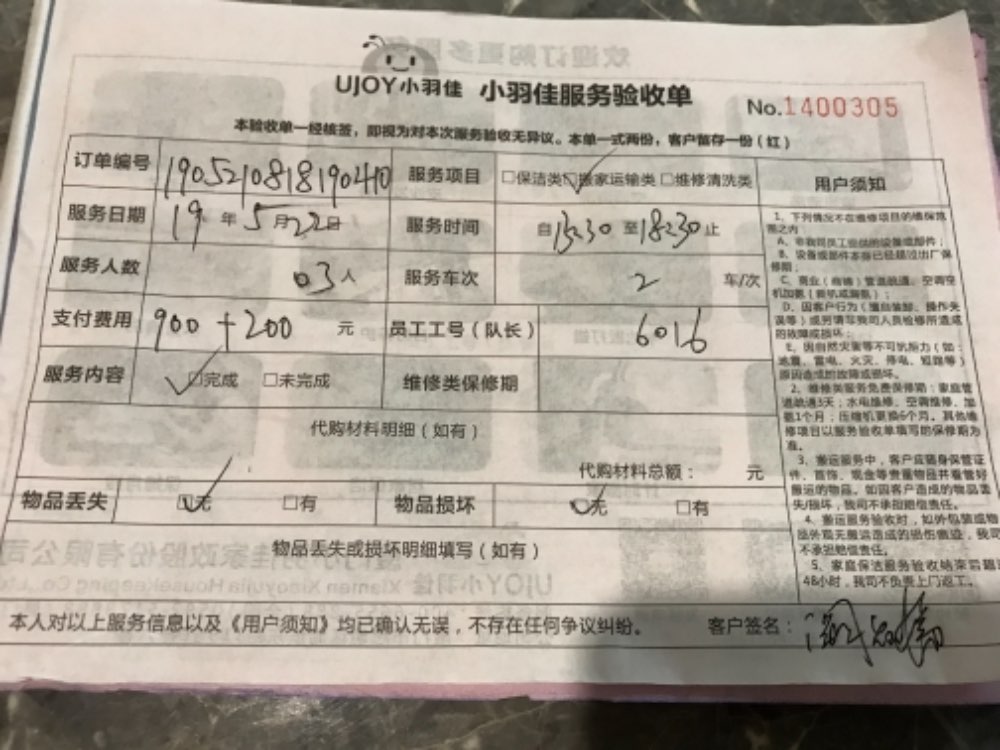 UJOY小羽佳 小羽佳服务验收单 No.1400305
本验收单一经核签，即视为对本次服务验收无异议。本单一式两份，客户留存一份（红）
订单编号 190521081819040 服务项目 □保洁类 ☑搬家运输类 □维修清洗类
服务日期 19年5月22日 服务时间 自15:30至18:30止
服务人数 03人 服务车次 2 车/次
支付费用 900+200 元 员工工号（队长） 6016
服务内容 ☑完成 □未完成 维修类保修期
代购材料明细（如有）
代购材料总额： 元
物品丢失 ☑无 □有 物品损坏 ☑无 □有
物品丢失或损坏明细填写（如有）
用户须知
1、下列情况不在维修项目的维保范
围之内：
A、非我司员工提供的设备或部件；
B、设备或部件本身已经超过出厂保
修期；
C、商业（商铺）管道疏通、空调空
机加氨（新机或漏氨）；
D、因客户行为（擅自维卸、操作失
误等）或另请非我司人员检修所造成
的故障或损坏；
E、因自然灾害等不可抗能力（如：
地震、雷电、火灾、停电、短路等）
原因造成的故障或损坏。
2、维修类服务免费保修期：家庭管
道疏通3天；水电维修、空调维修、加
氨1个月；压缩机更换6个月。其他维
修项目以服务验收单填写的保修期为
准。
3、搬运服务中，客户应随身保管证
件、首饰、现金等贵重物品并看管好
搬运的物品。如因客户造成的物品丢
失/损坏，我司不承担赔偿责任。
4、搬运服务验收时，如外包装或物
品外观无搬运造成的损伤痕迹，我司
不承担赔偿责任。
5、家庭保洁服务验收结束后超过
48小时，我司不负责上门返工。
本人对以上服务信息以及《用户须知》均已确认无误，不存在任何争议纠纷。 客户签名：